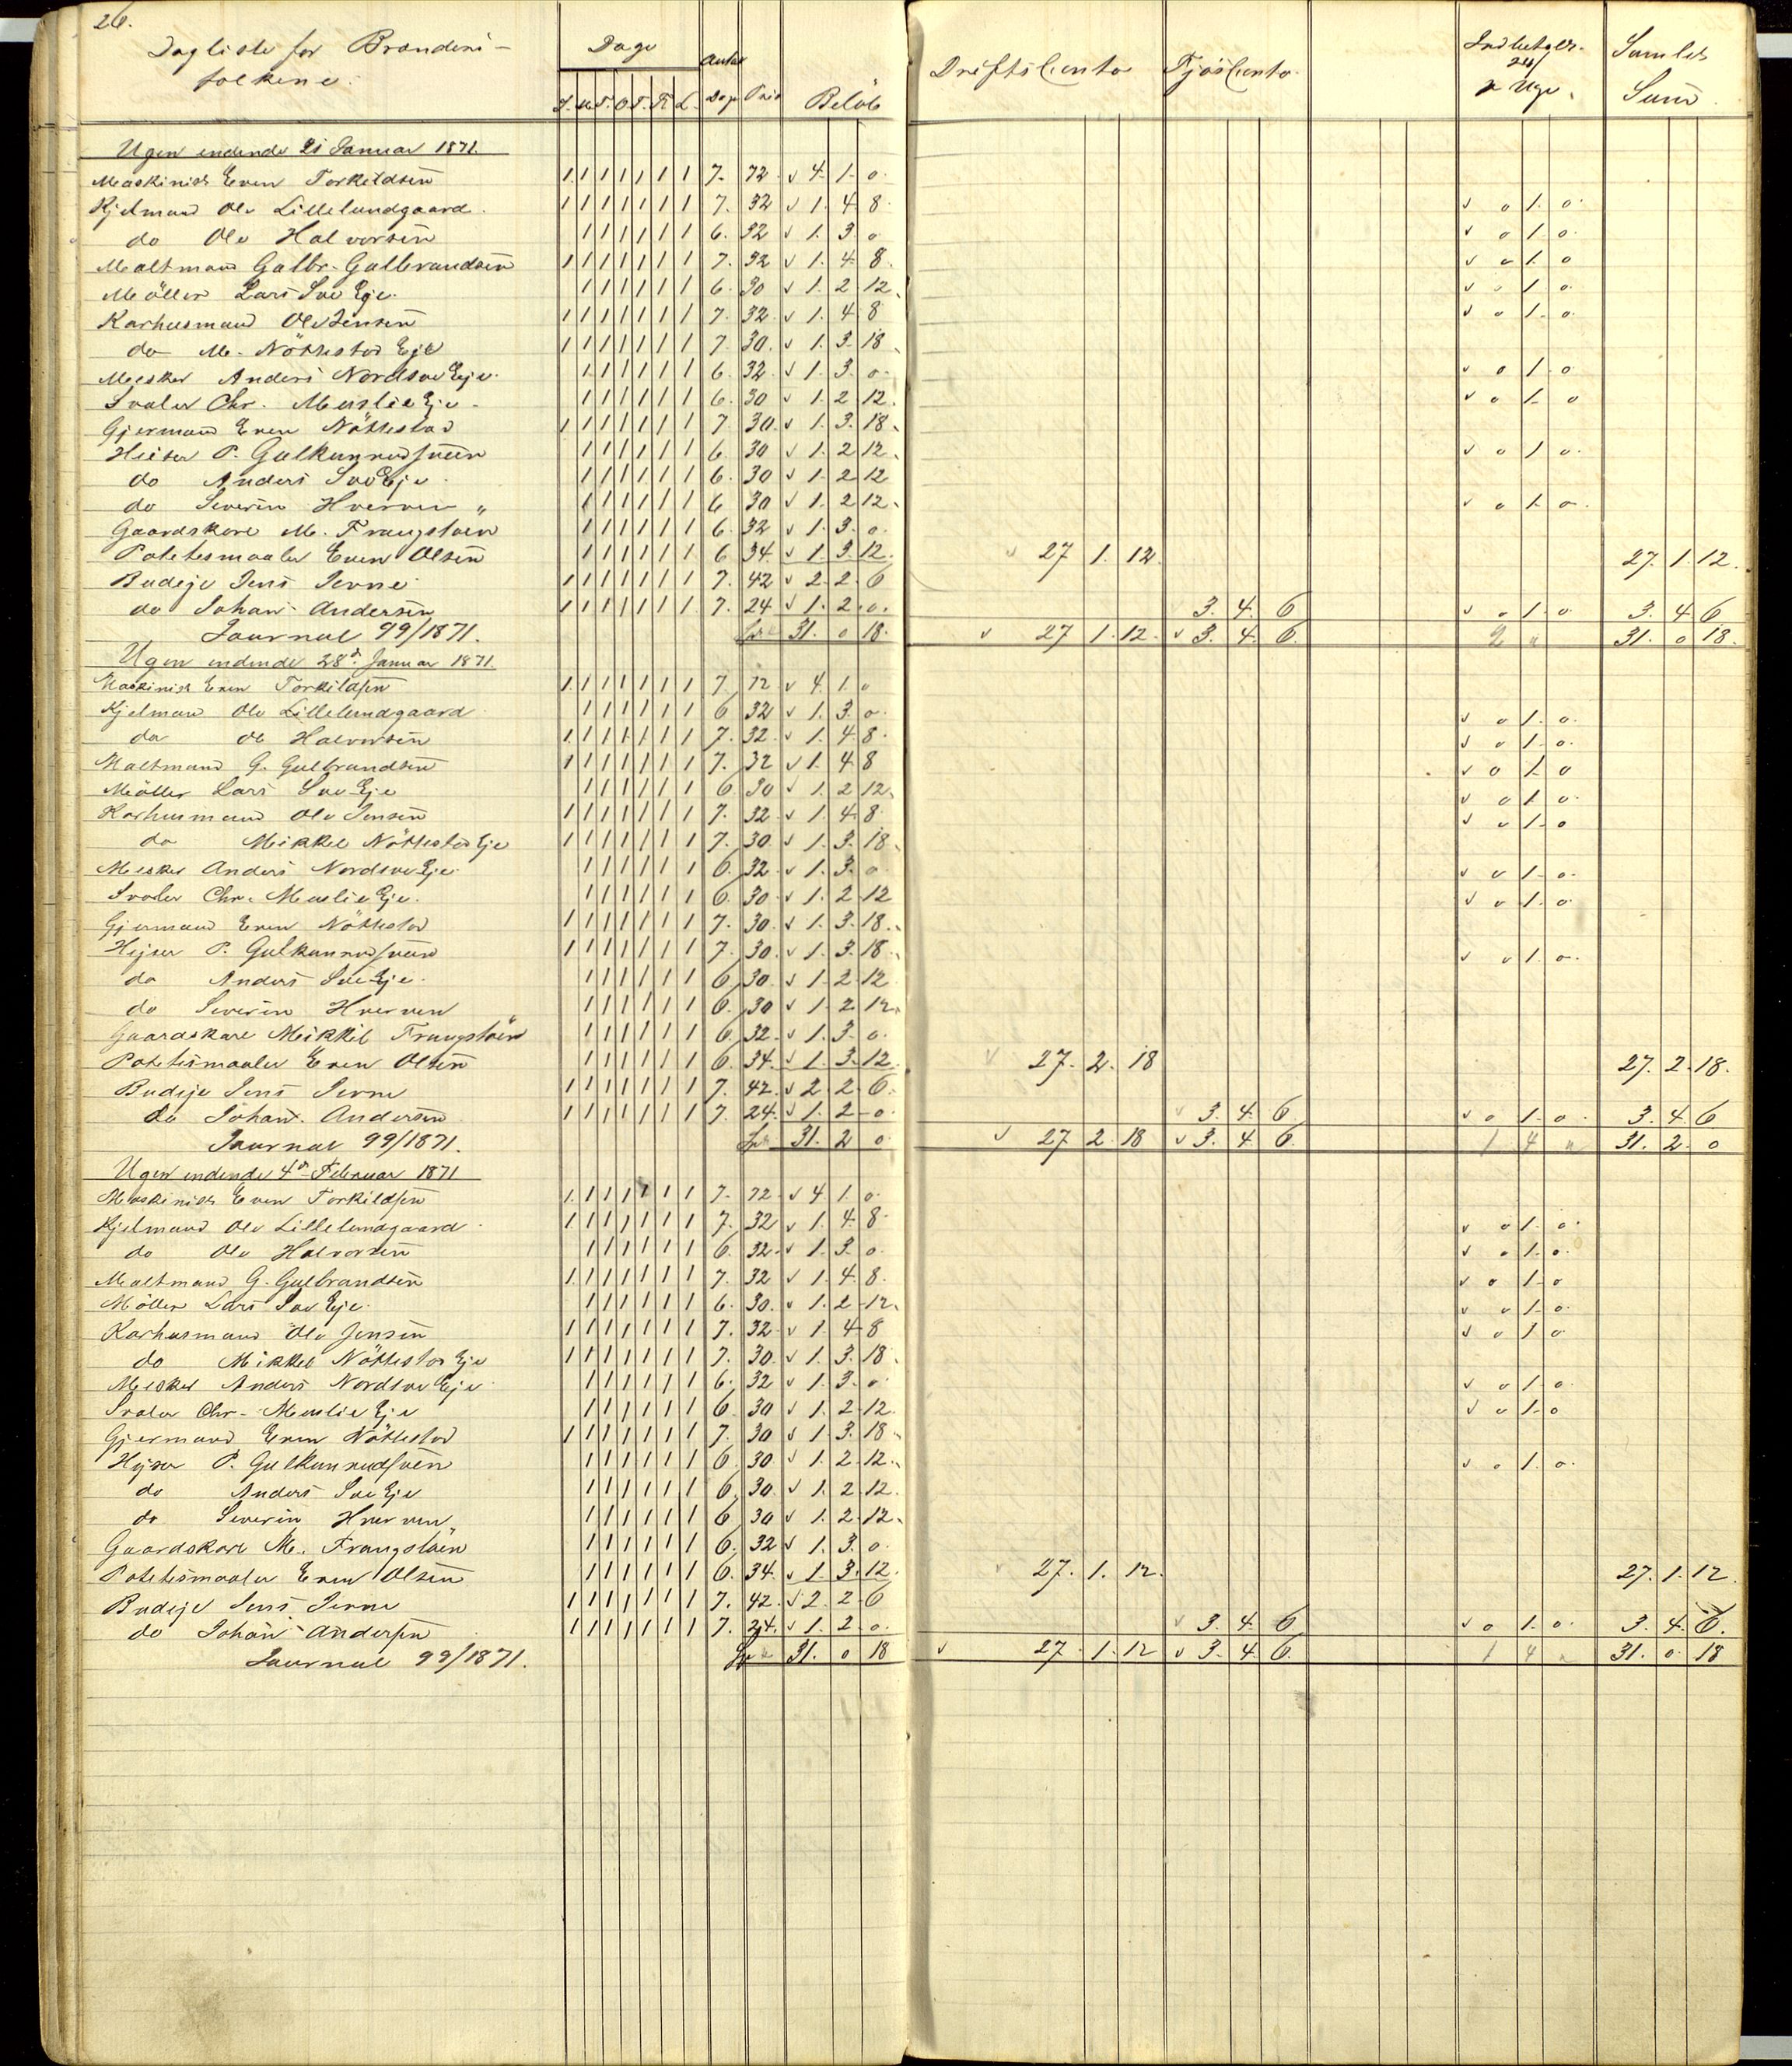 26.
Dagliste for Brænderi-
folkene.
Dage Antal
S. M. T. O. T. Fr. L. Dage Pris Beløb
Driftsconto Fjøsconto Indbetalt 24/ pr Uge. Samlet Sum
Ugen endende 21 Januar 1871.
Maskinist Even Torkildsen 1 1 1 1 1 1 1 7. 72 4. 1. 0.
Kjelmand Ole Lillelundgaard 1 1 1 1 1 1 1 7. 32 1. 4. 8. 0 1. 0.
do Ole Halvorsen 1 1 1 1 1 1 6. 32 1. 3. 0 0 1. 0.
Maltmand Gulbr. Gulbrandsen 1 1 1 1 1 1 1 7. 32 1. 4. 8. 0 1. 0
Möller Lars Soe Eje. 1 1 1 1 1 1 6. 30 1. 2. 12. 0 1 0.
Karhusmand Ole Jensen 1 1 1 1 1 1 1 7. 32 1. 4 8 0 1. 0.
do M. Nöttestad Eje 1 1 1 1 1 1 1 7 30. 1. 3. 18.
Mesker Anders Nordsoe Eje. 1 1 1 1 1 1 6. 32. 1. 3. 0. 0 1. 0
Svaler Chr. Muslie Eje. 1 1 1 1 1 1 6. 30 1. 2 12. 0 1. 0
Gjermand Even Nöttestad 1 1 1 1 1 1 1 7 30. 1. 3. 18.
Heiser P. Gulkunrudsveen 1 1 1 1 1 1 6. 30 1. 2 12. 0 1 0.
do Anders Soe Eje. 1 1 1 1 1 1 6. 30 1. 2 12
do Severin Hverven " 1 1 1 1 1 1 6 30 1. 2 12. 0 1. 0.
Gaardskare M. Frangstøen 1 1 1 1 1 1 6. 32 1. 3. 0.
Potetesmaaler Even Olsen 1 1 1 1 1 1 6 34. 1. 3. 12. 27 1. 12. 27. 1. 12.
Budeje Jens Jerne 1 1 1 1 1 1 1 7. 42 2. 2. 6
do Johan Andersen 1 1 1 1 1 1 1 7. 24 1. 2. 0. 3. 4. 6 0 1. 0. 3. 4. 6
Journal 99/1871. 31. 0 18. 27 1. 12. 3. 4. 6. 2 " 31. 0 18.
Ugen endende 28d Januar 1871.
Maskinist Even Torkildsen 1 1 1 1 1 1 1 7. 72 4. 1. 0
Kjelmand Ole Lillelundgaard 1 1 1 1 1 1 6 32 1. 3. 0. 0 1. 0.
do Ole Halvorsen 1 1 1 1 1 1 1 7. 32. 1. 4. 8. 0 1. 0.
Maltmand G. Gulbrandsen 1 1 1 1 1 1 1 7. 32 1. 4 8 0 1. 0
Möller Lars Soe Eje 1 1 1 1 1 1 6 30 1. 2 12. 0 1. 0.
Karhusmand Ole Jensen 1 1 1 1 1 1 1 7. 32. 1. 4. 8. 0 1. 0
do Mikkel Nöttestad Eje 1 1 1 1 1 1 1 7. 30. 1. 3. 18.
Mesker Anders Nordsoe Eje. 1 1 1 1 1 1 6. 32. 1. 3. 0 0 1. 0.
Svaler Chr. Muslie Eje. 1 1 1 1 1 1 6. 30. 1. 2 12 0 1. 0.
Gjermand Even Nöttestad 1 1 1 1 1 1 1 7. 30. 1. 3. 18.
Hejser P. Gulkunrudsveen 1 1 1 1 1 1 1 7. 30. 1. 3. 18. 0 1. 0.
do Anders Soe Eje. 1 1 1 1 1 1 6 30. 1. 2 12
do Severin Hverven 1 1 1 1 1 1 6. 30 1. 2 12.
Gaardskare Mikkel Frangstøen 1 1 1 1 1 1 6. 32. 1. 3. 0.
Potetesmaaler Even Olsen 1 1 1 1 1 1 6. 34. 1. 3. 12. 27. 2. 18 27. 2. 18.
Budeje Jens Jerne 1 1 1 1 1 1 1 7. 42. 2 2. 6.
do Johan Andersen 1 1 1 1 1 1 1 7. 24. 1. 2 0. 3. 4. 6 0 1. 0. 3. 4. 6
Journal 99/1871. 31. 2 0. 27 2. 18 3. 4. 6. 1 4 " 31. 2. 0
Ugen endende 4d Februar 1871
Maskinist Even Torkildsen 1 1 1 1 1 1 1 7. 72 4 1. 0.
Kjelmand Ole Lillelundgaard 1 1 1 1 1 1 1 7. 32 1. 4. 8. 0 1. 0.
do Ole Halvorsen 1 1 1 1 1 1 6. 32. 1. 3. 0. 0 1. 0.
Maltmand G. Gulbrandsen 1 1 1 1 1 1 1 7. 32 1. 4. 8. 0 1. 0
Möller Lars Soe Eje. 1 1 1 1 1 1 6. 30. 1. 2 12. 0 1. 0.
Karhusmand Ole Jensen 1 1 1 1 1 1 1 7. 32. 1. 4 8 0 1. 0.
do Mikkel Nöttestad Eje 1 1 1 1 1 1 1 7. 30. 1. 3. 18.
Mesker Anders Nordsoe Eje 1 1 1 1 1 1 6. 32 1. 3. 0. 0 1. 0.
Svaler Chr. Muslie Eje 1 1 1 1 1 1 6. 30 1. 2. 12. 0 1. 0
Gjermand Even Nöttestad 1 1 1 1 1 1 1 7. 30 1. 3. 18
Hejser P. Gulkunrudsveen 1 1 1 1 1 1 6. 30. 1. 2. 12. 0 1. 0.
do Anders Soe Eje 1 1 1 1 1 1 6. 30. 1. 2 12.
do Severin Hverven 1 1 1 1 1 1 6 30 1. 2. 12.
Gaardskare M. Frangstøen 1 1 1 1 1 1 6. 32 1. 3. 0.
Potetesmaaler Even Olsen 1 1 1 1 1 1 6. 34. 1. 3. 12. 27. 1. 12. 27. 1. 12
Budeje Jens Jerne 1 1 1 1 1 1 1 7. 42. 2 2 6
do Johan Andersen 1 1 1 1 1 1 1 7. 24. 1. 2. 0. 3. 4. 6 0 1. 0. 3. 4. 6.
Journal 99/1871. 31. 0 18 27. 1. 12 3. 4. 6. 1 4 " 31. 0. 18